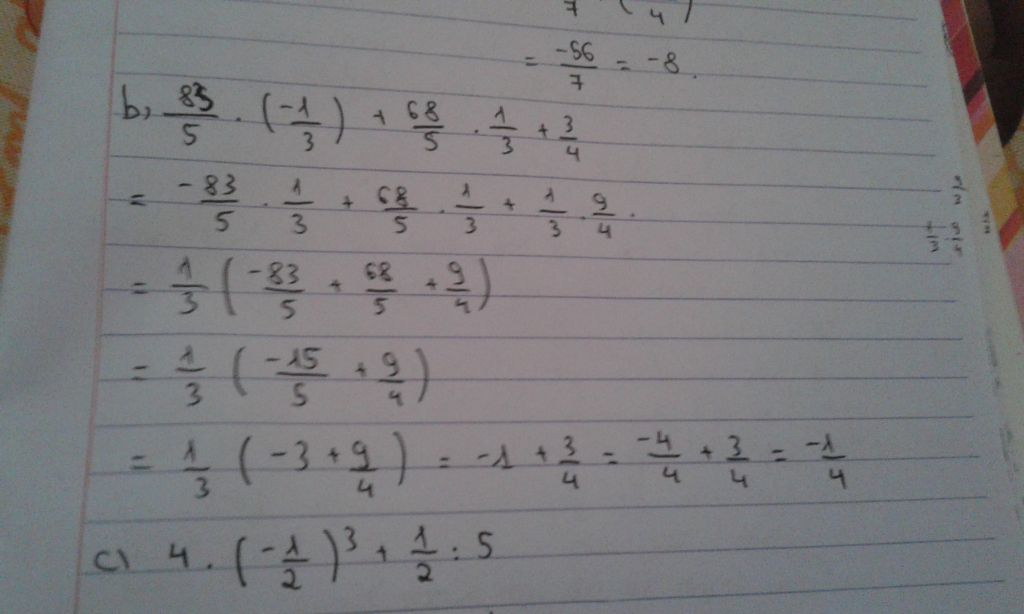 7 ( 4 )
= -56/7 = -8.
b, 83/5 . (-1/3) + 68/5 . 1/3 + 3/4
= -83/5 . 1/3 + 68/5 . 1/3 + 1/3 . 9/4 .
= 1/3 ( -83/5 + 68/5 + 9/4 )
= 1/3 ( -15/5 + 9/4 )
= 1/3 ( -3 + 9/4 ) = -1 + 3/4 = -4/4 + 3/4 = -1/4
c) 4 . (-1/2)^3 + 1/2 : 5